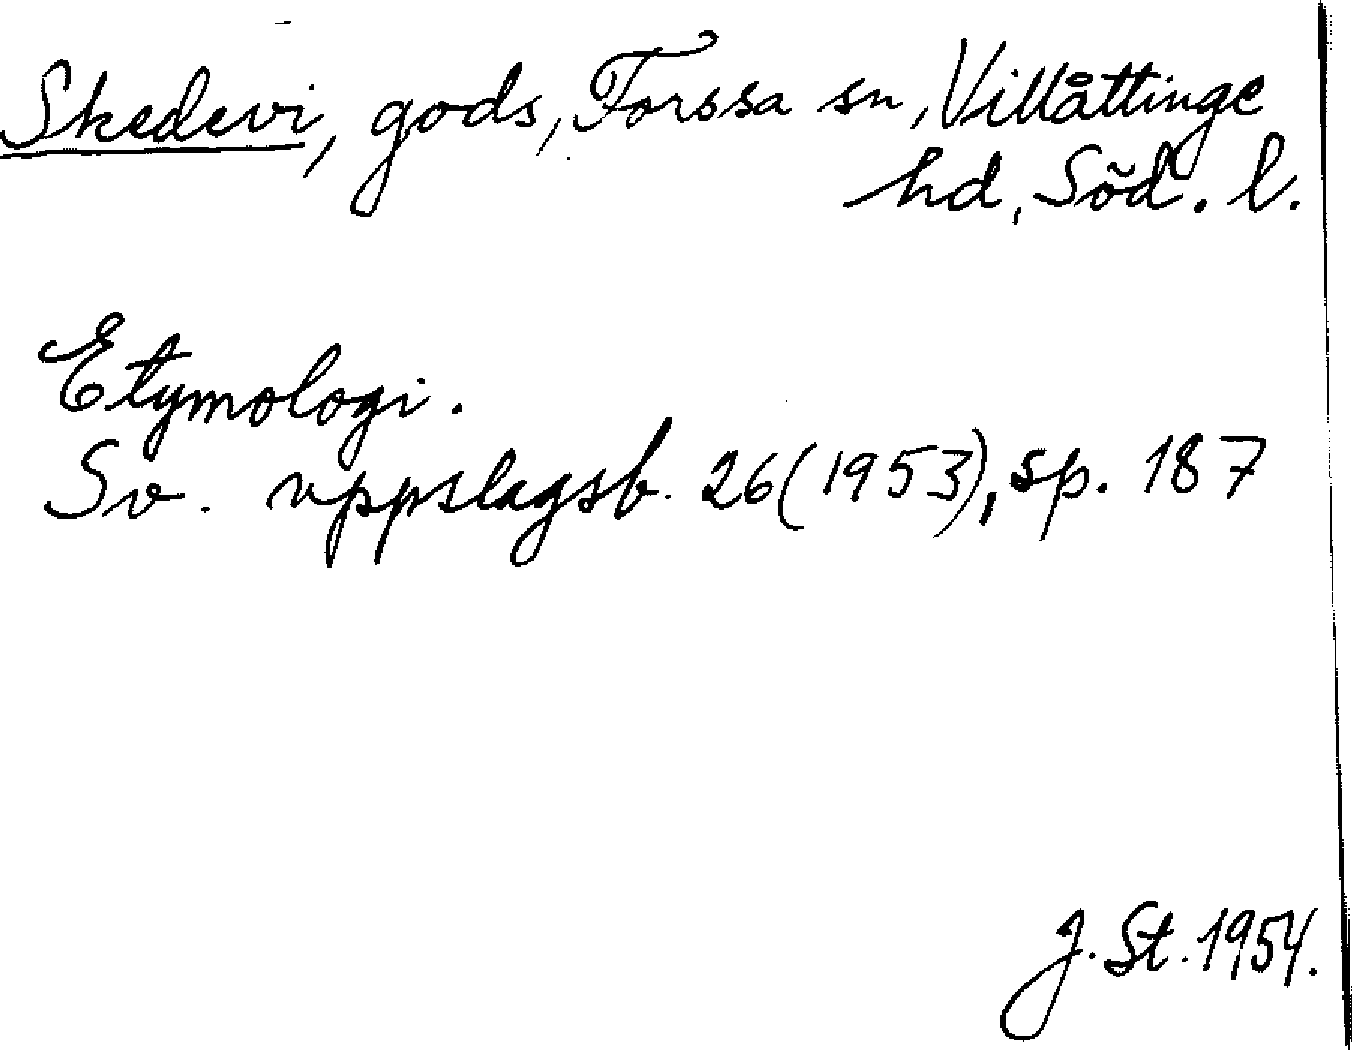 Skedevi, gods, Forssa sn, Villåttinge
hd, Söd. l.
Etymologi.
Sv. uppslagsb. 26(1953), sp. 187
J. St. 1954.